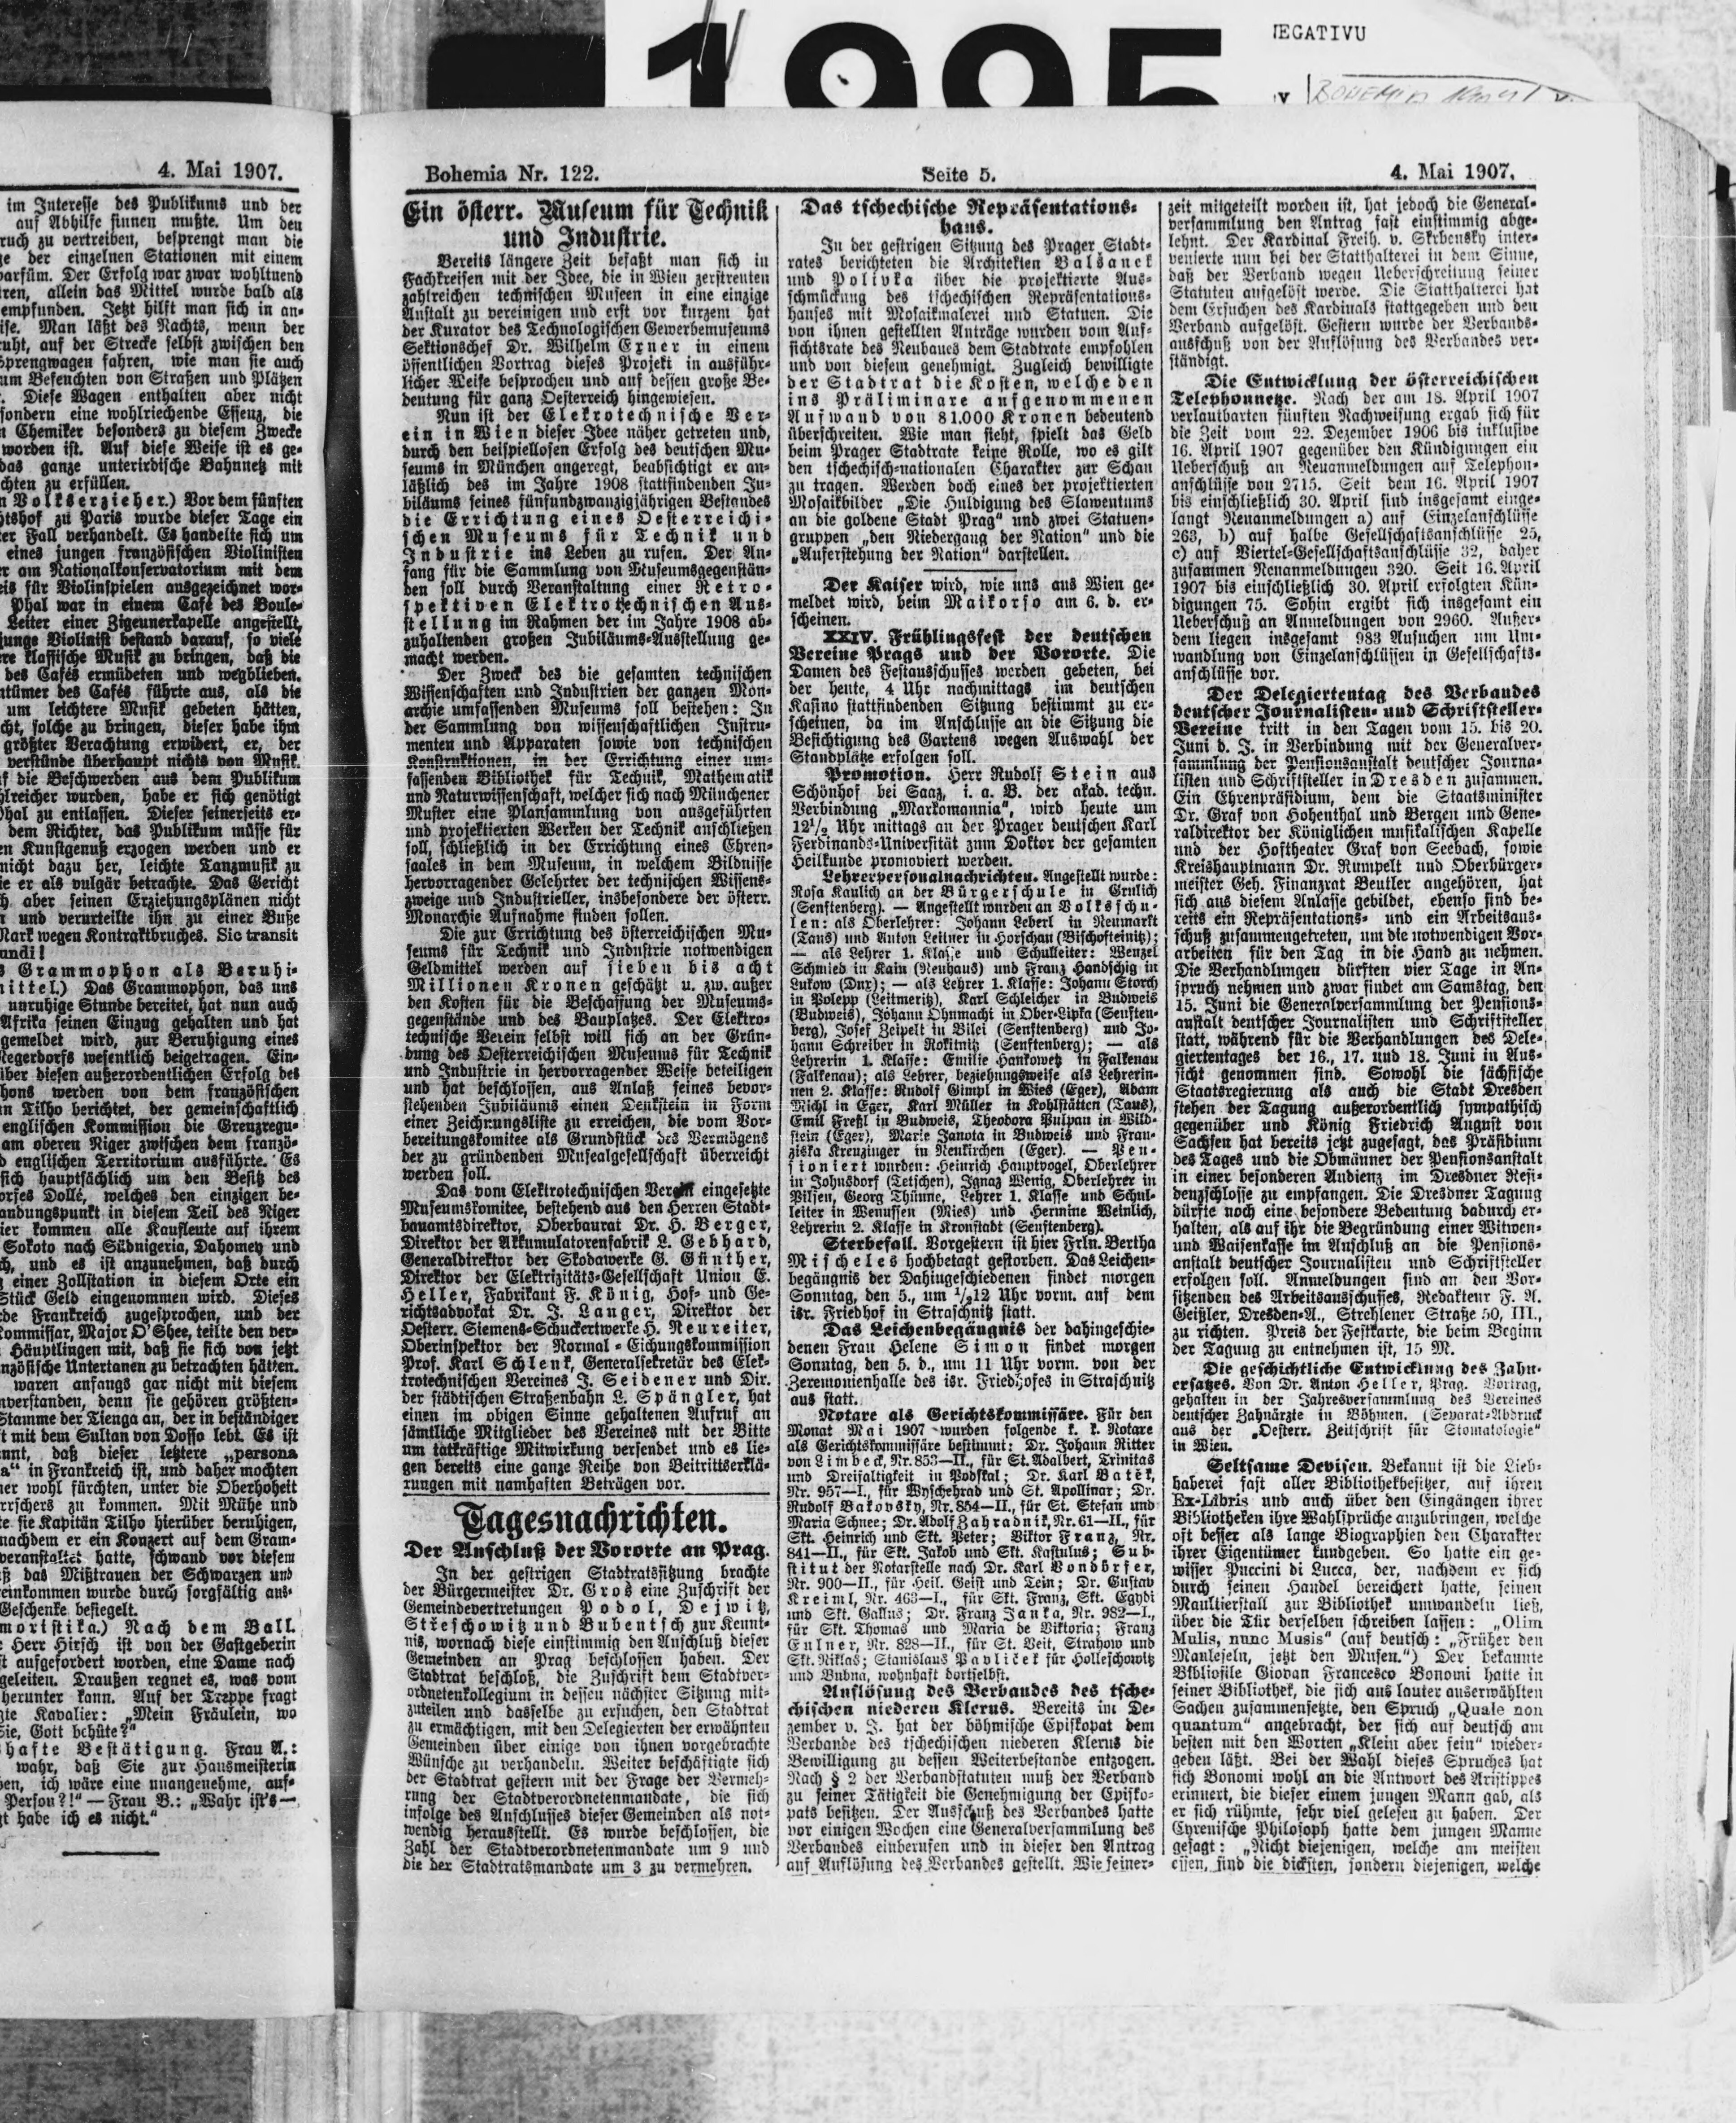 1995
NEGATIVU
4. Mai 1907.
im Interesse des Publikums und der
auf Abhilfe sinnen mußte. Um den
ruch zu vertreiben, besprengt man die
der einzelnen Stationen mit einem
parfüm. Der Erfolg war zwar wohltuend
allein das Mittel wurde bald als
empfunden. Jetzt hilft man sich in an-
Man läßt des Nachts, wenn der
ruht, auf der Strecke selbst zwischen den
Sprengwagen fahren, wie man sie auch
um Befeuchten von Straßen und Plätzen
Diese Wagen enthalten aber nicht
sondern eine wohlriechende Essenz, die
Chemiker besonders zu diesem Zwecke
worden ist. Auf diese Weise ist es ge-
das ganze unterirdische Bahnnetz mit
chten zu erfüllen.
Volkserzieher.) Vor dem fünften
htshof zu Paris wurde dieser Tage ein
er Fall verhandelt. Es handelte sich um
eines jungen französischen Violinisten
am Nationalkonservatorium mit dem
eis für Violinspielen ausgezeichnet wor-
Phal war in einem Café des Boule-
Leiter einer Zigeunerkapelle angestellt,
junge Violinist bestand darauf, so viele
re klassische Musik zu bringen, daß die
des Cafés ermüdeten und wegblieben.
ntümer des Cafés führte aus, als die
um leichtere Musik gebeten hätten,
cht, solche zu bringen, dieser habe ihm
größter Verachtung erwidert, er, der
verstünde überhaupt nichts von Musik.
die Beschwerden aus dem Publikum
hlreicher wurden, habe er sich genötigt
Phal zu entlassen. Dieser seinerseits er-
dem Richter, das Publikum müsse für
en Kunstgenuß erzogen werden und er
nicht dazu her, leichte Tanzmusik zu
ie er als vulgär betrachte. Das Gericht
aber seinen Erziehungsplänen nicht
und verurteilte ihn zu einer Buße
Mark wegen Kontraktbruches. Sic transit
undi!
Grammophon als Beruhi-
mittel.) Das Grammophon, das uns
unruhige Stunde bereitet, hat nun auch
Afrika seinen Einzug gehalten und hat
gemeldet wird, zur Beruhigung eines
Negerdorfs wesentlich beigetragen. Ein-
über diesen außerordentlichen Erfolg des
hons werden von dem französischen
n Tilho berichtet, der gemeinschaftlich
englischen Kommission die Grenzregu-
am oberen Niger zwischen dem franzö-
englischen Territorium ausführte. Es
sich hauptsächlich um den Besitz des
orfes Dollé, welches den einzigen be-
andungspunkt in diesem Teil des Niger
ier kommen alle Kaufleute auf ihrem
Sokoto nach Südnigeria, Dahomey und
und es ist anzunehmen, daß durch
einer Zollstation in diesem Orte ein
Stück Geld eingenommen wird. Dieses
de Frankreich zugesprochen, und der
ommissar, Major O'Shee, teilte den ver-
Häuptlingen mit, daß sie sich von jetzt
nzösische Untertanen zu betrachten hätten.
waren anfangs gar nicht mit diesem
nverstanden, denn sie gehören größten-
Stamme der Tienga an, der in beständiger
mit dem Sultan von Dosso lebt. Es ist
nnt, daß dieser letztere „persona
a“ in Frankreich ist, und daher mochten
er wohl fürchten, unter die Oberhoheit
rrschers zu kommen. Mit Mühe und
te sie Kapitän Tilho hierüber beruhigen,
nachdem er ein Konzert auf dem Gram-
veranstaltet hatte, schwand vor diesem
ß das Mißtrauen der Schwarzen und
einkommen wurde durch sorgfältig aus-
Geschenke besiegelt.
moristika.) Nach dem Ball.
Herr Hirsch ist von der Gastgeberin
t aufgefordert worden, eine Dame nach
geleiten. Draußen regnet es, was vom
herunter kann. Auf der Treppe fragt
gte Kavalier: „Mein Fräulein, wo
Sie, Gott behüte?“
hafte Bestätigung. Frau A.:
wahr, daß Sie zur Hausmeisterin
en, ich wäre eine unangenehme, auf-
Person?!“ — Frau B.: „Wahr ist's —
t habe ich es nicht.“
Bohemia Nr. 122.
Seite 5.
4. Mai 1907.
Ein österr. Museum für Technik
und Industrie.
Bereits längere Zeit befaßt man sich in
Fachkreisen mit der Idee, die in Wien zerstreuten
zahlreichen technischen Museen in eine einzige
Anstalt zu vereinigen und erst vor kurzem hat
der Kurator des Technologischen Gewerbemuseums
Sektionschef Dr. Wilhelm Exner in einem
öffentlichen Vortrag dieses Projekt in ausführ-
licher Weise besprochen und auf dessen große Be-
deutung für ganz Oesterreich hingewiesen.
Nun ist der Elektrotechnische Ver-
ein in Wien dieser Idee näher getreten und,
durch den beispiellosen Erfolg des deutschen Mu-
seums in München angeregt, beabsichtigt er an-
läßlich des im Jahre 1908 stattfindenden Ju-
biläums seines fünfundzwanzigjährigen Bestandes
die Errichtung eines Oesterreichi-
schen Museums für Technik und
Industrie ins Leben zu rufen. Der An-
fang für die Sammlung von Museumsgegenstän-
den soll durch Veranstaltung einer Retro-
spektiven Elektrotechnischen Aus-
stellung im Rahmen der im Jahre 1908 ab-
zuhaltenden großen Jubiläums-Ausstellung ge-
macht werden.
Der Zweck des die gesamten technischen
Wissenschaften und Industrien der ganzen Mon-
archie umfassenden Museums soll bestehen: In
der Sammlung von wissenschaftlichen Instru-
menten und Apparaten sowie von technischen
Konstruktionen, in der Errichtung einer um-
fassenden Bibliothek für Technik, Mathematik
und Naturwissenschaft, welcher sich nach Münchener
Muster eine Plansammlung von ausgeführten
und projektierten Werken der Technik anschließen
soll, schließlich in der Errichtung eines Ehren-
saales in dem Museum, in welchem Bildnisse
hervorragender Gelehrter der technischen Wissens-
zweige und Industrieller, insbesondere der österr.
Monarchie Aufnahme finden sollen.
Die zur Errichtung des österreichischen Mu-
seums für Technik und Industrie notwendigen
Geldmittel werden auf sieben bis acht
Millionen Kronen geschätzt u. zw. außer
den Kosten für die Beschaffung der Museums-
gegenstände und des Bauplatzes. Der Elektro-
technische Verein selbst will sich an der Grün-
dung des Oesterreichischen Museums für Technik
und Industrie in hervorragender Weise beteiligen
und hat beschlossen, aus Anlaß seines bevor-
stehenden Jubiläums einen Denkstein in Form
einer Zeichnungsliste zu erreichen, die vom Vor-
bereitungskomitee als Grundstück des Vermögens
der zu gründenden Musealgesellschaft überreicht
werden soll.
Das vom Elektrotechnischen Verein eingesetzte
Museumskomitee, bestehend aus den Herren Stadt-
bauamtsdirektor, Oberbaurat Dr. H. Berger,
Direktor der Akkumulatorenfabrik L. Gebhard,
Generaldirektor der Skodawerke G. Günther,
Direktor der Elektrizitäts-Gesellschaft Union E.
Heller, Fabrikant F. König, Hof- und Ge-
richtsadvokat Dr. J. Langer, Direktor der
Oesterr. Siemens-Schuckertwerke H. Neureiter,
Oberinspektor der Normal-Eichungskommission
Prof. Karl Schlenk, Generalsekretär des Elek-
trotechnischen Vereines J. Seidener und Dir.
der städtischen Straßenbahn L. Spängler, hat
einen im obigen Sinne gehaltenen Aufruf an
sämtliche Mitglieder des Vereines mit der Bitte
um tatkräftige Mitwirkung versendet und es lie-
gen bereits eine ganze Reihe von Beitrittserklä-
rungen mit namhaften Beträgen vor.
Tagesnachrichten.
Der Anschluß der Vororte an Prag.
In der gestrigen Stadtratssitzung brachte
der Bürgermeister Dr. Gros eine Zuschrift der
Gemeindevertretungen Podol, Dejwitz,
Streschowitz und Bubentsch zur Kennt-
nis, wornach diese einstimmig den Anschluß dieser
Gemeinden an Prag beschlossen haben. Der
Stadtrat beschloß, die Zuschrift dem Stadtver-
ordnetenkollegium in dessen nächster Sitzung mit-
zuteilen und dasselbe zu ersuchen, den Stadtrat
zu ermächtigen, mit den Delegierten der erwähnten
Gemeinden über einige von ihnen vorgebrachte
Wünsche zu verhandeln. Weiter beschäftigte sich
der Stadtrat gestern mit der Frage der Vermeh-
rung der Stadtverordnetenmandate, die sich
infolge des Anschlusses dieser Gemeinden als not-
wendig herausstellt. Es wurde beschlossen, die
Zahl der Stadtverordnetenmandate um 9 und
die der Stadtratsmandate um 3 zu vermehren.
Das tschechische Repräsentations-
haus.
In der gestrigen Sitzung des Prager Stadt-
rates berichteten die Architekten Balšanek
und Polivka über die projektierte Aus-
schmückung des tschechischen Repräsentations-
hauses mit Mosaikmalerei und Statuen. Die
von ihnen gestellten Anträge wurden vom Auf-
sichtsrate des Neubaues dem Stadtrate empfohlen
und von diesem genehmigt. Zugleich bewilligte
der Stadtrat die Kosten, welche den
ins Präliminare aufgenommenen
Aufwand von 81.000 Kronen bedeutend
überschreiten. Wie man sieht, spielt das Geld
beim Prager Stadtrate keine Rolle, wo es gilt
den tschechisch-nationalen Charakter zur Schau
zu tragen. Werden doch eines der projektierten
Mosaikbilder „Die Huldigung des Slawentums
an die goldene Stadt Prag“ und zwei Statuen-
gruppen „den Niedergang der Nation“ und die
„Auferstehung der Nation“ darstellen.
Der Kaiser wird, wie uns aus Wien ge-
meldet wird, beim Maikorso am 6. d. er-
scheinen.
XXIV. Frühlingsfest der deutschen
Vereine Prags und der Vororte. Die
Damen des Festausschusses werden gebeten, bei
der heute, 4 Uhr nachmittags im deutschen
Kasino stattfindenden Sitzung bestimmt zu er-
scheinen, da im Anschlusse an die Sitzung die
Besichtigung des Gartens wegen Auswahl der
Standplätze erfolgen soll.
Promotion. Herr Rudolf Stein aus
Schönhof bei Saaz, i. a. B. der akad. techn.
Verbindung „Markomannia“, wird heute um
12½ Uhr mittags an der Prager deutschen Karl
Ferdinands-Universität zum Doktor der gesamten
Heilkunde promoviert werden.
Lehrerpersonalnachrichten. Angestellt wurde:
Rosa Kaulich an der Bürgerschule in Grulich
(Senftenberg). — Angestellt wurden an Volksschu-
len: als Oberlehrer: Johann Leberl in Neumarkt
(Taus) und Anton Leitner in Horschau (Bischofteinitz);
— als Lehrer 1. Klasse und Schulleiter: Wenzel
Schmied in Kain (Neuhaus) und Franz Handschig in
Lukow (Dux); — als Lehrer 1. Klasse: Johann Storch
in Polepp (Leitmeritz), Karl Schleicher in Budweis
(Budweis), Johann Ohnmacht in Ober-Lipka (Senften-
berg), Josef Zeipelt in Bilei (Senftenberg) und Jo-
hann Schreiber in Rokitnitz (Senftenberg); — als
Lehrerin 1. Klasse: Emilie Hankowetz in Falkenau
(Falkenau); als Lehrer, beziehungsweise als Lehrerin-
nen 2. Klasse: Rudolf Gimpl in Wies (Eger), Adam
Michl in Eger, Karl Müller in Kohlstätten (Taus),
Emil Freßl in Budweis, Theodora Pulpan in Wild-
stein (Eger), Marie Janota in Budweis und Fran-
ziska Kreuzinger in Neukirchen (Eger). — Pen-
sioniert wurden: Heinrich Hauptvogel, Oberlehrer
in Johnsdorf (Tetschen), Ignaz Wenig, Oberlehrer in
Pilsen, Georg Thünne, Lehrer 1. Klasse und Schul-
leiter in Wenussen (Mies) und Hermine Weinlich,
Lehrerin 2. Klasse in Kronstadt (Senftenberg).
Sterbefall. Vorgestern ist hier Frln. Bertha
Mischeles hochbetagt gestorben. Das Leichen-
begängnis der Dahingeschiedenen findet morgen
Sonntag, den 5., um ½12 Uhr vorm. auf dem
isr. Friedhof in Straschnitz statt.
Das Leichenbegängnis der dahingeschie-
denen Frau Helene Simon findet morgen
Sonntag, den 5. d., um 11 Uhr vorm. von der
Zeremonienhalle des isr. Friedhofes in Straschnitz
aus statt.
Notare als Gerichtskommissäre. Für den
Monat Mai 1907 wurden folgende k. k. Notare
als Gerichtskommissäre bestimmt: Dr. Johann Ritter
von Limbeck, Nr. 853—II., für St. Adalbert, Trinitas
und Dreifaltigkeit in Podskal; Dr. Karl Batěk,
Nr. 957—I., für Wyschehrad und St. Apollinar; Dr.
Rudolf Bakovsky, Nr. 854—II., für St. Stefan und
Maria Schnee; Dr. Adolf Zahradnik, Nr. 61—II., für
Skt. Heinrich und Skt. Peter; Viktor Franz, Nr.
841—II., für Skt. Jakob und Skt. Kastulus; Sub-
stitut der Notarstelle nach Dr. Karl Bondörfer,
Nr. 900—II., für Heil. Geist und Tein; Dr. Gustav
Kreiml, Nr. 463—I., für Skt. Franz, Skt. Egydi
und Skt. Gallus; Dr. Franz Janka, Nr. 982—I.,
für Skt. Thomas und Maria de Viktoria; Franz
Eulner, Nr. 828—II., für St. Veit, Strahow und
Skt. Niklas; Stanislaus Pavliček für Holleschowitz
und Bubna, wohnhaft dortselbst.
Auflösung des Verbandes des tsche-
chischen niederen Klerus. Bereits im De-
zember v. J. hat der böhmische Episkopat dem
Verbande des tschechischen niederen Klerus die
Bewilligung zu dessen Weiterbestande entzogen.
Nach § 2 der Verbandstatuten muß der Verband
zu seiner Tätigkeit die Genehmigung der Episko-
pats besitzen. Der Ausschuß des Verbandes hatte
vor einigen Wochen eine Generalversammlung des
Verbandes einberufen und in dieser den Antrag
auf Auflösung des Verbandes gestellt. Wie seiner-
zeit mitgeteilt worden ist, hat jedoch die General-
versammlung den Antrag fast einstimmig abge-
lehnt. Der Kardinal Freih. v. Skrbensky inter-
venierte nun bei der Statthalterei in dem Sinne,
daß der Verband wegen Ueberschreitung seiner
Statuten aufgelöst werde. Die Statthalterei hat
dem Ersuchen des Kardinals stattgegeben und den
Verband aufgelöst. Gestern wurde der Verbands-
ausschuß von der Auflösung des Verbandes ver-
ständigt.
Die Entwicklung der österreichischen
Telephonnetze. Nach der am 18. April 1907
verlautbarten fünften Nachweisung ergab sich für
die Zeit vom 22. Dezember 1906 bis inklusive
16. April 1907 gegenüber den Kündigungen ein
Ueberschuß an Neuanmeldungen auf Telephon-
anschlüsse von 2715. Seit dem 16. April 1907
bis einschließlich 30. April sind insgesamt einge-
langt Neuanmeldungen a) auf Einzelanschlüsse
263, b) auf halbe Gesellschaftsanschlüsse 25,
c) auf Viertel-Gesellschaftsanschlüsse 32, daher
zusammen Neuanmeldungen 320. Seit 16. April
1907 bis einschließlich 30. April erfolgten Kün-
digungen 75. Sohin ergibt sich insgesamt ein
Ueberschuß an Anmeldungen von 2960. Außer-
dem liegen insgesamt 983 Ansuchen um Um-
wandlung von Einzelanschlüssen in Gesellschafts-
anschlüsse vor.
Der Delegiertentag des Verbandes
deutscher Journalisten- und Schriftsteller-
Vereine tritt in den Tagen vom 15. bis 20.
Juni d. J. in Verbindung mit der Generalver-
sammlung der Pensionsanstalt deutscher Journa-
listen und Schriftsteller in Dresden zusammen.
Ein Ehrenpräsidium, dem die Staatsminister
Dr. Graf von Hohenthal und Bergen und Gene-
raldirektor der Königlichen musikalischen Kapelle
und der Hoftheater Graf von Seebach, sowie
Kreishauptmann Dr. Rumpelt und Oberbürger-
meister Geh. Finanzrat Beutler angehören, hat
sich aus diesem Anlasse gebildet, ebenso sind be-
reits ein Repräsentations- und ein Arbeitsaus-
schuß zusammengetreten, um die notwendigen Vor-
arbeiten für den Tag in die Hand zu nehmen.
Die Verhandlungen dürften vier Tage in An-
spruch nehmen und zwar findet am Samstag, den
15. Juni die Generalversammlung der Pensions-
anstalt deutscher Journalisten und Schriftsteller
statt, während für die Verhandlungen des Dele-
giertentages der 16., 17. und 18. Juni in Aus-
sicht genommen sind. Sowohl die sächsische
Staatsregierung als auch die Stadt Dresden
stehen der Tagung außerordentlich sympathisch
gegenüber und König Friedrich August von
Sachsen hat bereits jetzt zugesagt, das Präsidium
des Tages und die Obmänner der Pensionsanstalt
in einer besonderen Audienz im Dresdner Resi-
denzschlosse zu empfangen. Die Dresdner Tagung
dürfte noch eine besondere Bedeutung dadurch er-
halten, als auf ihr die Begründung einer Witwen-
und Waisenkasse im Anschluß an die Pensions-
anstalt deutscher Journalisten und Schriftsteller
erfolgen soll. Anmeldungen sind an den Vor-
sitzenden des Arbeitsausschusses, Redakteur F. A.
Geißler, Dresden-A., Strehlener Straße 50, III.,
zu richten. Preis der Festkarte, die beim Beginn
der Tagung zu entnehmen ist, 15 M.
Die geschichtliche Entwicklung des Zahn-
ersatzes. Von Dr. Anton Heller, Prag. Vortrag,
gehalten in der Jahresversammlung des Vereines
deutscher Zahnärzte in Böhmen. (Separat-Abdruck
aus der „Oesterr. Zeitschrift für Stomatologie“
in Wien.
Seltsame Devisen. Bekannt ist die Lieb-
haberei fast aller Bibliothekbesitzer, auf ihren
Ex-Libris und auch über den Eingängen ihrer
Bibliotheken ihre Wahlsprüche anzubringen, welche
oft besser als lange Biographien den Charakter
ihrer Eigentümer kundgeben. So hatte ein ge-
wisser Puccini di Lucca, der, nachdem er sich
durch seinen Handel bereichert hatte, seinen
Maultierstall zur Bibliothek umwandeln ließ,
über die Tür derselben schreiben lassen: „Olim
Mulis, nunc Musis“ (auf deutsch: „Früher den
Mauleseln, jetzt den Musen.“) Der bekannte
Bibliofile Giovan Francesco Bonomi hatte in
seiner Bibliothek, die sich aus lauter auserwählten
Sachen zusammensetzte, den Spruch „Quale non
quantum“ angebracht, der sich auf deutsch am
besten mit den Worten „Klein aber fein“ wieder-
geben läßt. Bei der Wahl dieses Spruches hat
sich Bonomi wohl an die Antwort des Aristippes
erinnert, die dieser einem jungen Mann gab, als
er sich rühmte, sehr viel gelesen zu haben. Der
Cyrenische Philosoph hatte dem jungen Manne
gesagt: „Nicht diejenigen, welche am meisten
essen, sind die dicksten, sondern diejenigen, welche